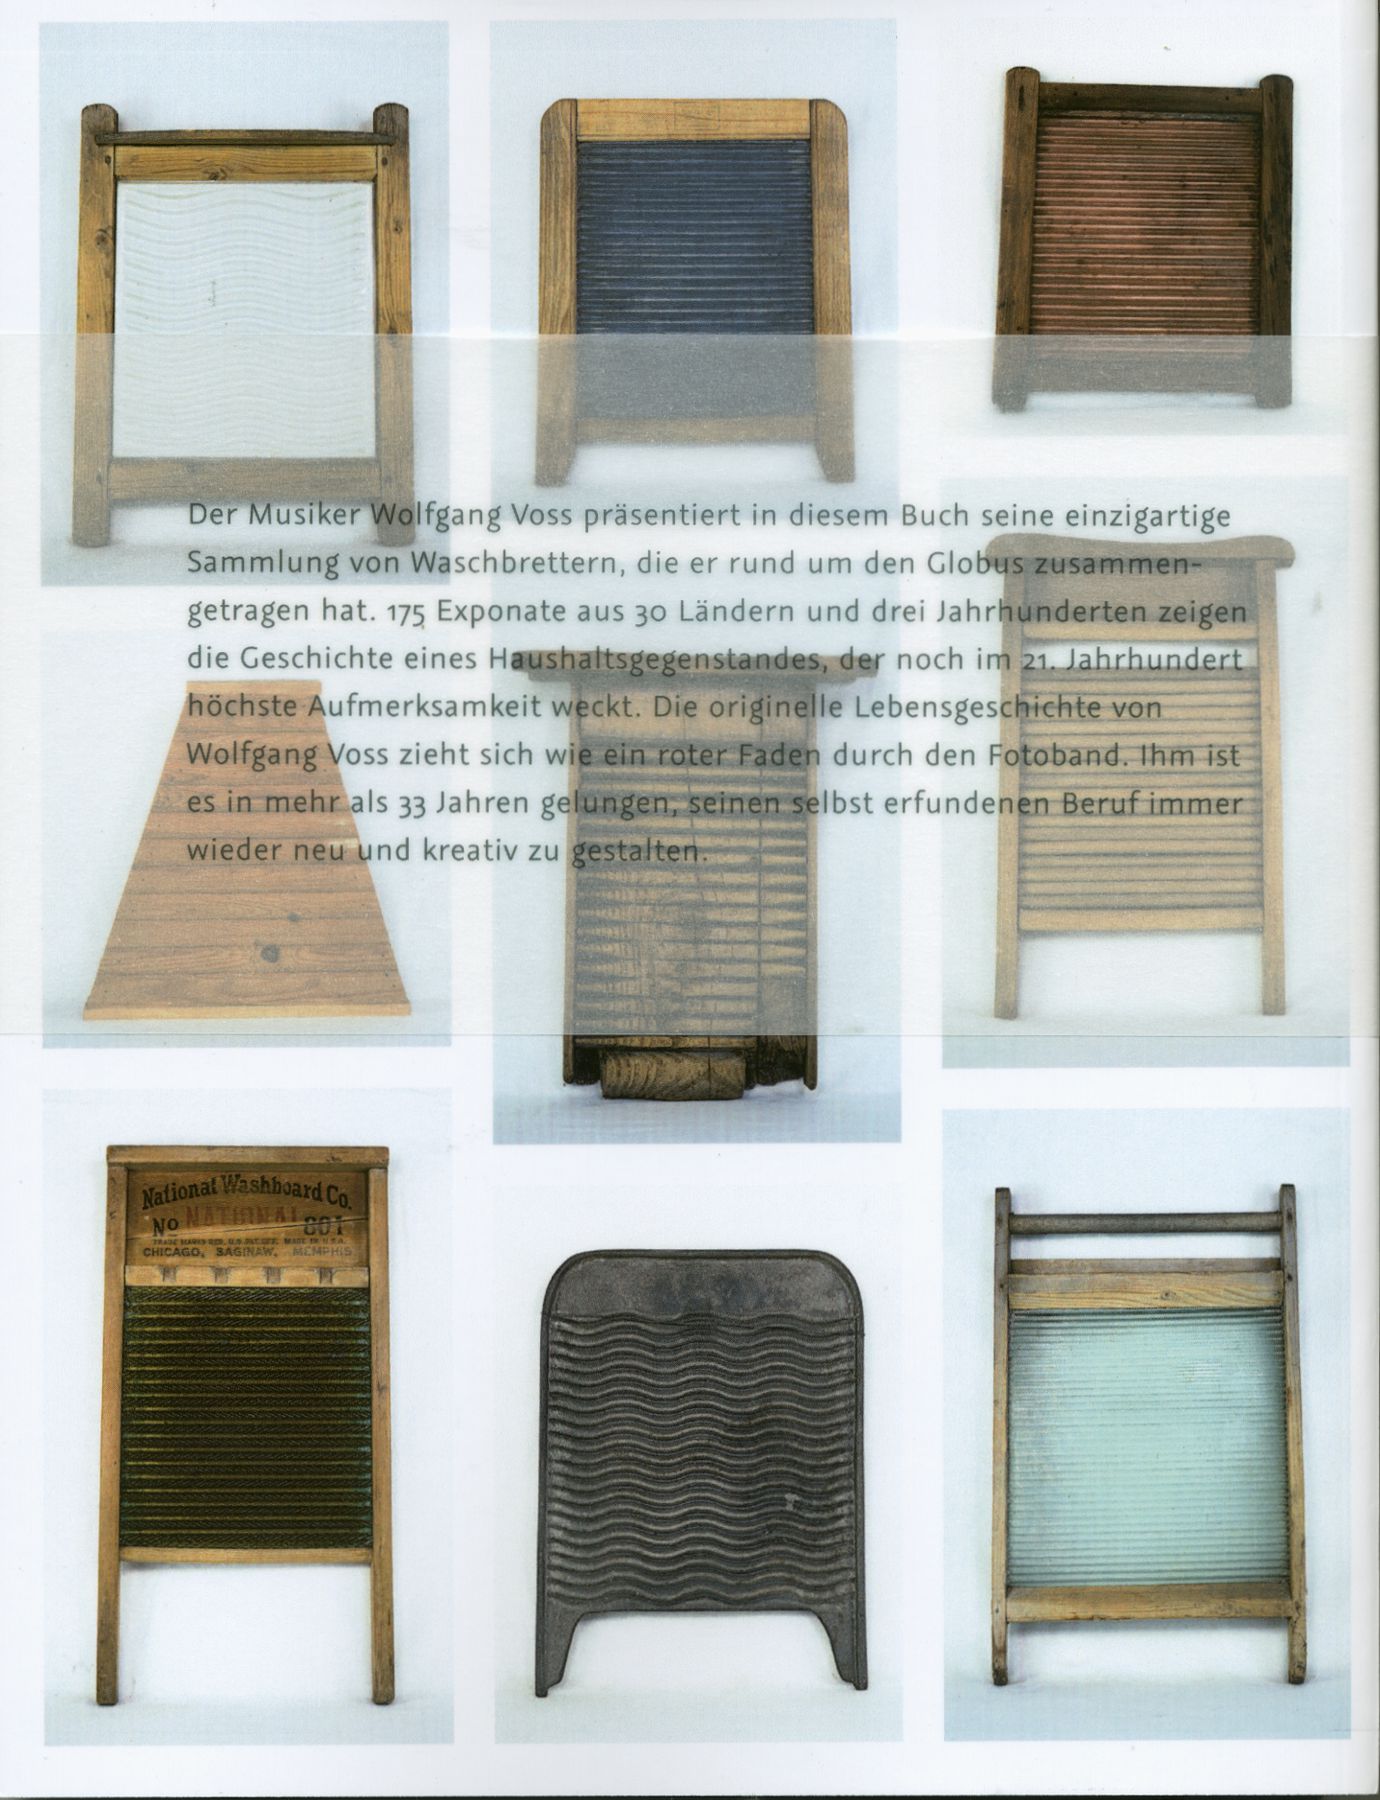 Der Musiker Wolfgang Voss präsentiert in diesem Buch seine einzigartige
Sammlung von Waschbrettern, die er rund um den Globus zusammen-
getragen hat. 175 Exponate aus 30 Ländern und drei Jahrhunderten zeigen
die Geschichte eines Haushaltsgegenstandes, der noch im 21. Jahrhundert
höchste Aufmerksamkeit weckt. Die originelle Lebensgeschichte von
Wolfgang Voss zieht sich wie ein roter Faden durch den Fotoband. Ihm ist
es in mehr als 33 Jahren gelungen, seinen selbst erfundenen Beruf immer
wieder neu und kreativ zu gestalten.
National Washboard Co.
No NATIONAL 801
TRADE MARKS REG. U.S. PAT. OFF. MADE IN U.S.A.
CHICAGO, SAGINAW, MEMPHIS